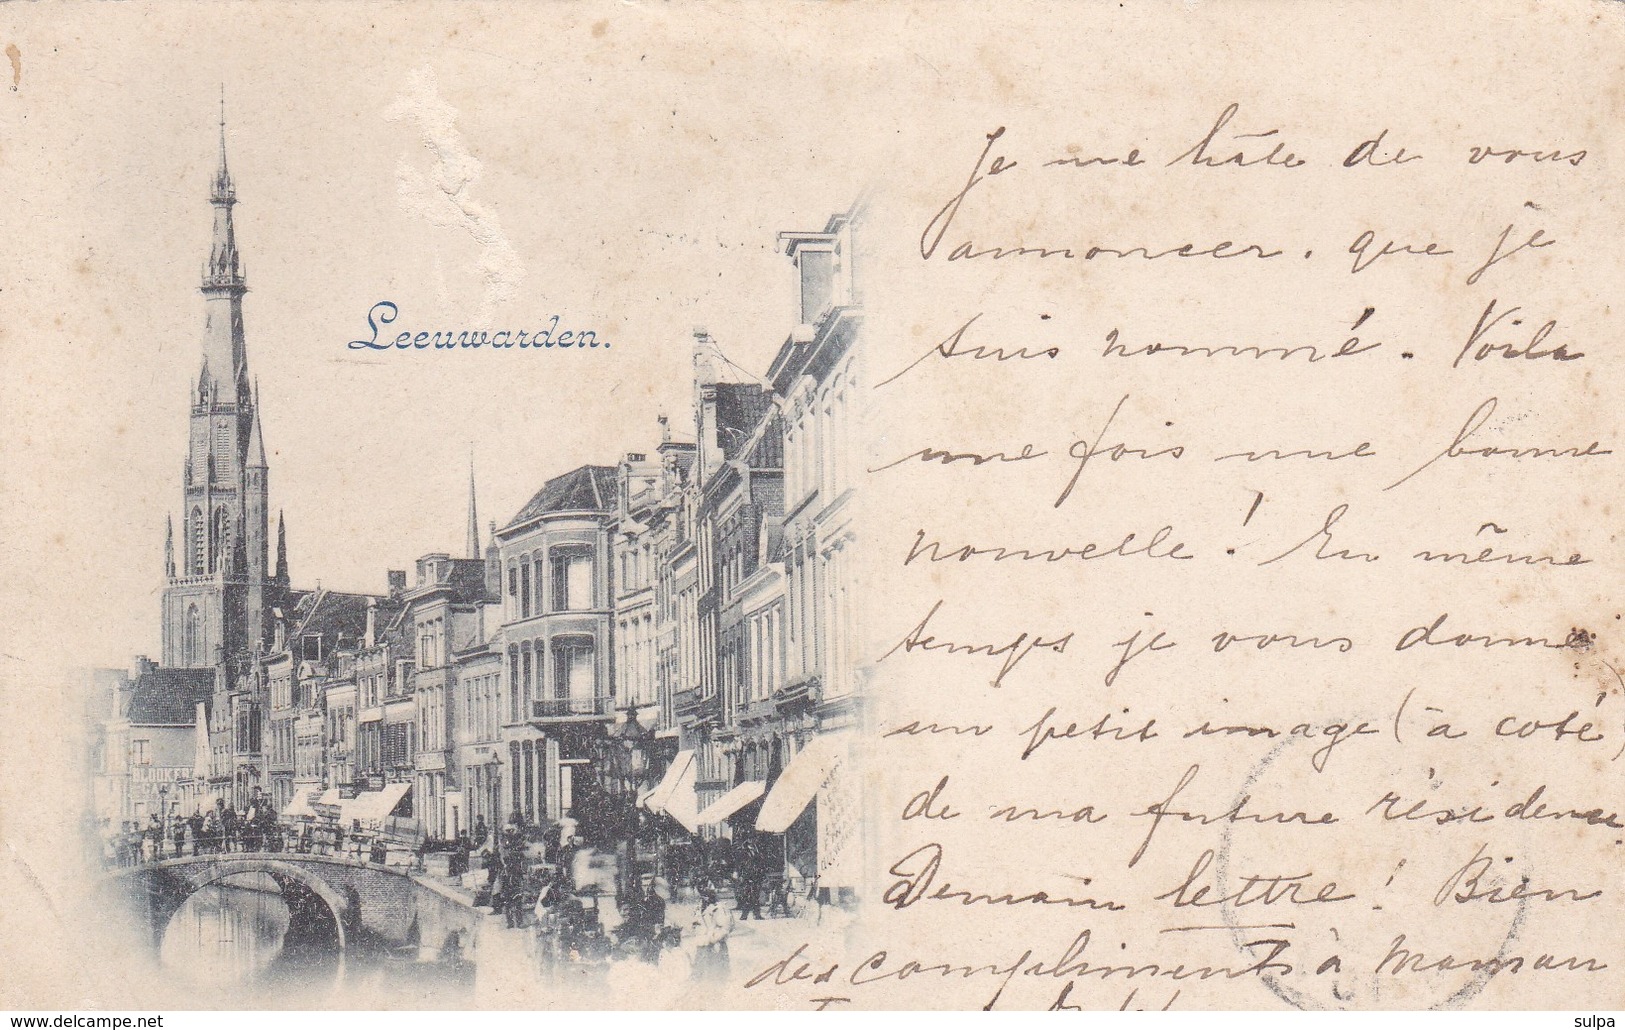 Leeuwarden.
Je me hâte de vous
annoncer. que je
suis nommé. Voila
une fois une bonne
nouvelle! En même
temps je vous donne
un petit image (à coté)
de ma future résidence.
Demain lettre! Bien
des compliments à Maman
BLOOKER
CACAO
www.delcampe.net
sulpa